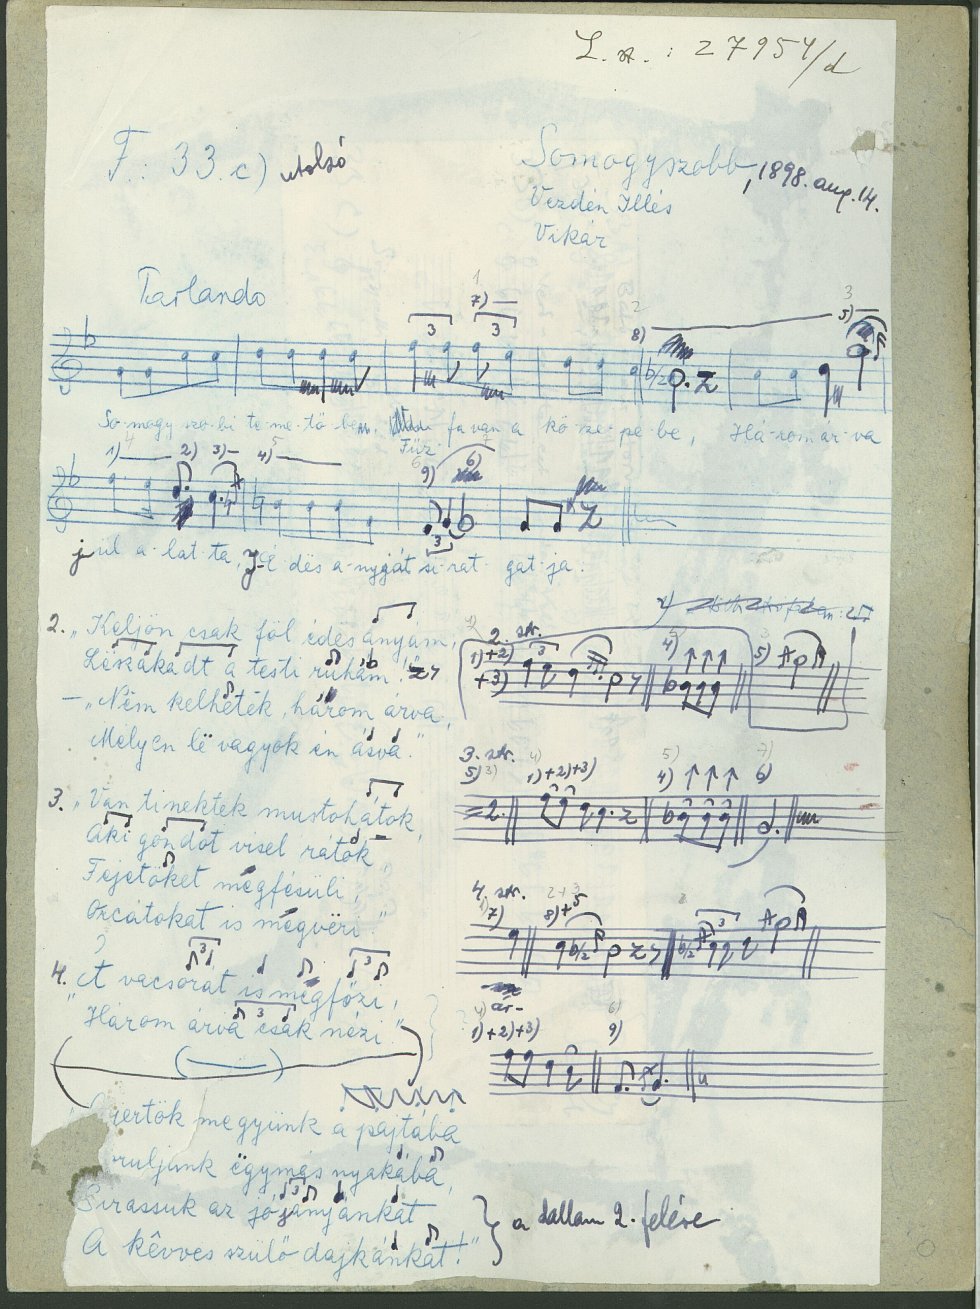 L. sz.: 27954/d
F. 33.c) utolsó
Somogyszobb, 1898. aug. 14.
Vezdén Illés
Vikár
Parlando
1
7)
3 3
2
8)
3
5)
So-mogy-szo-bi te-me-tő-be, fa van a kö-ze-pé-be, Há-rom ár-va
Fűz
1) 4 2) 3) 4) 5 9) 6 6) 7
3
ül a-lat-ta, É-dës a-nyját si-rat-gat-ja.
2. „Keljön csak föl édës anyám,
Lëszakadt a testi ruhám!"
– „Nem kelhetëk, három árva,
Mélyen lë vagyok én ásva."
2. str.
1)+2)
+3)
3
4)
5)
3. „Van tinektëk mustohátok,
Aki gondot visel rátok
Fejetöket mëgfésüli,
Orcátokat is mëgvëri"
3. str.
5) 3) 4) 1)+2)+3) 5) 4) 7) 6)
4. str.
1) 7) 2+3 8)+5
3
?
4. „A vacsorát is mëgfőzi,
Három árva csak nézi."
3 3 3
ár-
4) 1)+2)+3) 6) 9)
Gyertök megyünk a pajtába
ruljunk ëgymás nyakába,
Sirassuk az jó anyánkat
A kêvves szülő dajkánkat!"
3
} a dallam 2. felére